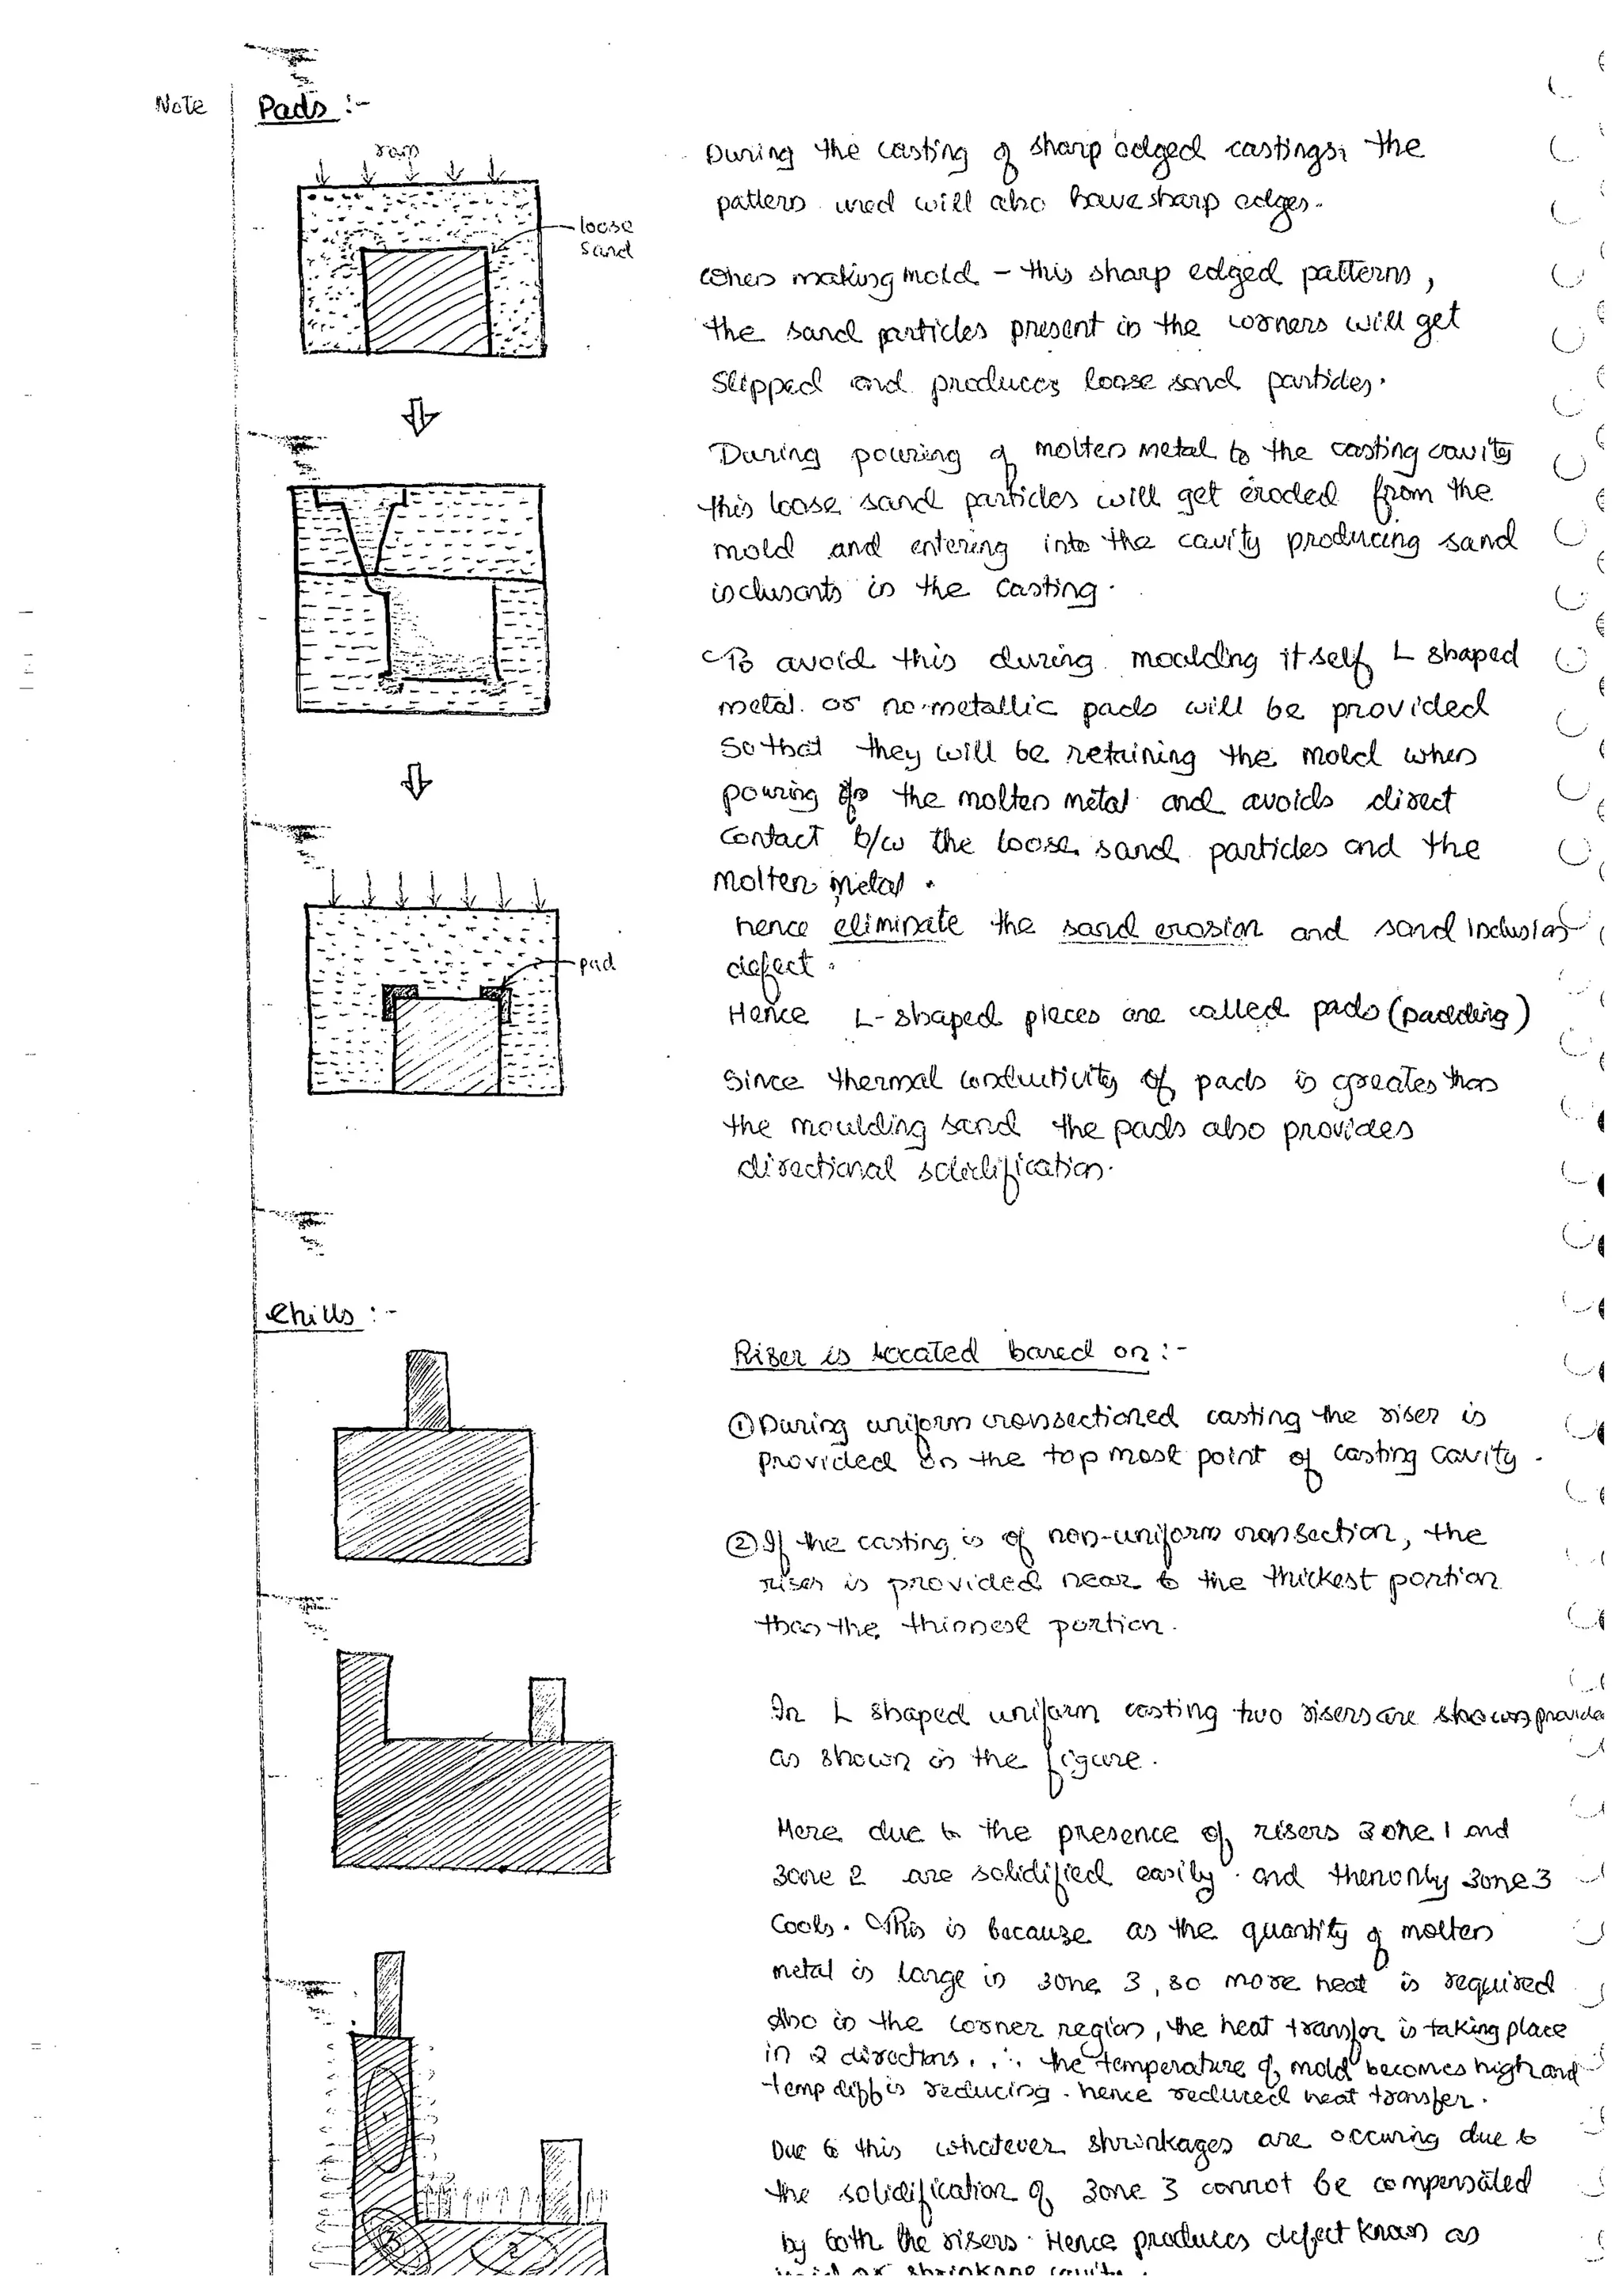 Note
Pads :-
ram
loose
sand
During the casting of sharp edged castings, the
pattern used will also have sharp edges.
When making mold - this sharp edged pattern,
the sand particles present in the corners will get
slipped and produces loose sand particles.
During pouring of molten metal to the casting cavity
this loose sand particles will get eroded from the
mold and entering into the cavity producing sand
inclusants in the casting.
To avoid this during moulding itself L shaped
metal or no-metallic pads will be provided
so that they will be retaining the mold when
pouring the molten metal and avoids direct
contact b/w the loose sand particles and the
molten metal.
hence eliminate the sand erosion and sand inclusion
defect.
pad
Hence L-shaped pieces are called pads (padding)
Since thermal conductivity of pads is greater than
the moulding sand the pads also provides
directional solidification.
Chills :-
Riser is located based on :-
① During uniform crossectioned casting the riser is
provided on the top most point of casting cavity.
② If the casting is of non-uniform cronsection, the
riser is provided near to the thickest portion
than the thinnest portion.
In L shaped uniform casting two risers are provide
as shown in the figure.
Here due to the presence of risers zone 1 and
zone 2 are solidified easily and then only zone 3
cools. This is because as the quantity of molten
metal is large in zone 3, so more heat is required
also in the corner region, the heat transfer is taking place
in 2 directions. ∴ the temperature of mold becomes high and
temp diff is reducing. hence reduced heat transfer.
Due to this whatever shrinkages are occuring due to
the solidification of zone 3 connot be compensated
by both the risers. Hence produces defect known as